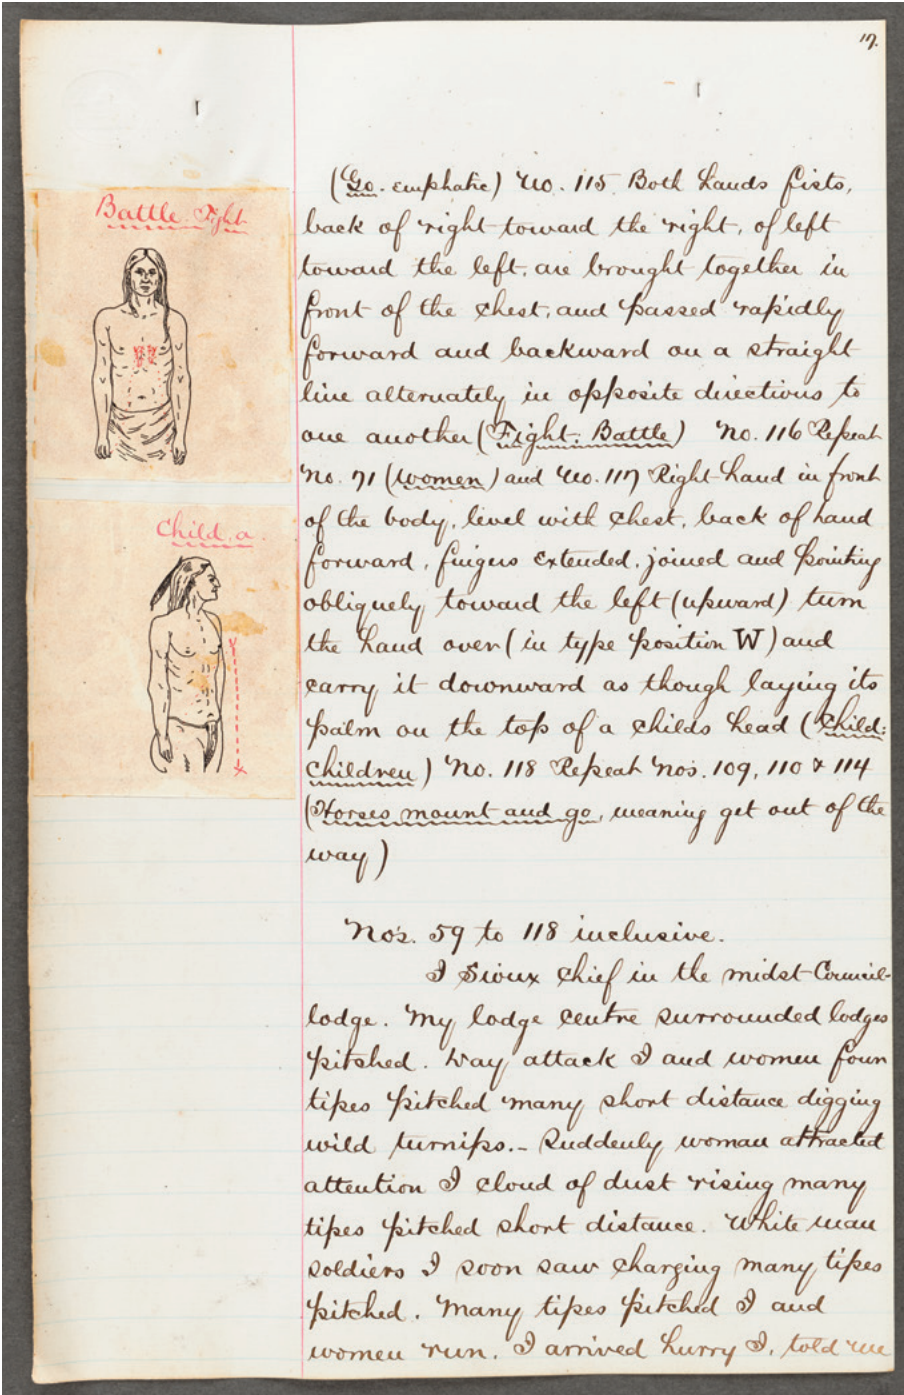 17.
Battle. Fight
Child, a.
(Go. emphatic) No. 115. Both hands fists,
back of right toward the right, of left
toward the left, are brought together in
front of the chest, and passed rapidly
forward and backward on a straight
line alternately in opposite directions to
one another (Fight. Battle) No. 116 Repeat
No. 71 (women) and No. 117 Right hand in front
of the body, level with chest, back of hand
forward, fingers extended, joined and pointing
obliquely toward the left (upward) turn
the hand over (in type position W) and
carry it downward as though laying its
palm on the top of a childs head (Child:
Children) No. 118 Repeat Nos. 109, 110 & 114
(Horses mount and go, meaning get out of the
way)
Nos. 59 to 118 inclusive.
I Sioux chief in the midst Council-
lodge. My lodge centre surrounded lodges
pitched. Day attack I and women four
tipes pitched many short distance digging
wild turnips.- Suddenly woman attracted
attention I cloud of dust rising many
tipes pitched short distance. White man
soldiers I soon saw charging many tipes
pitched. Many tipes pitched I and
women run. I arrived hurry I, told me